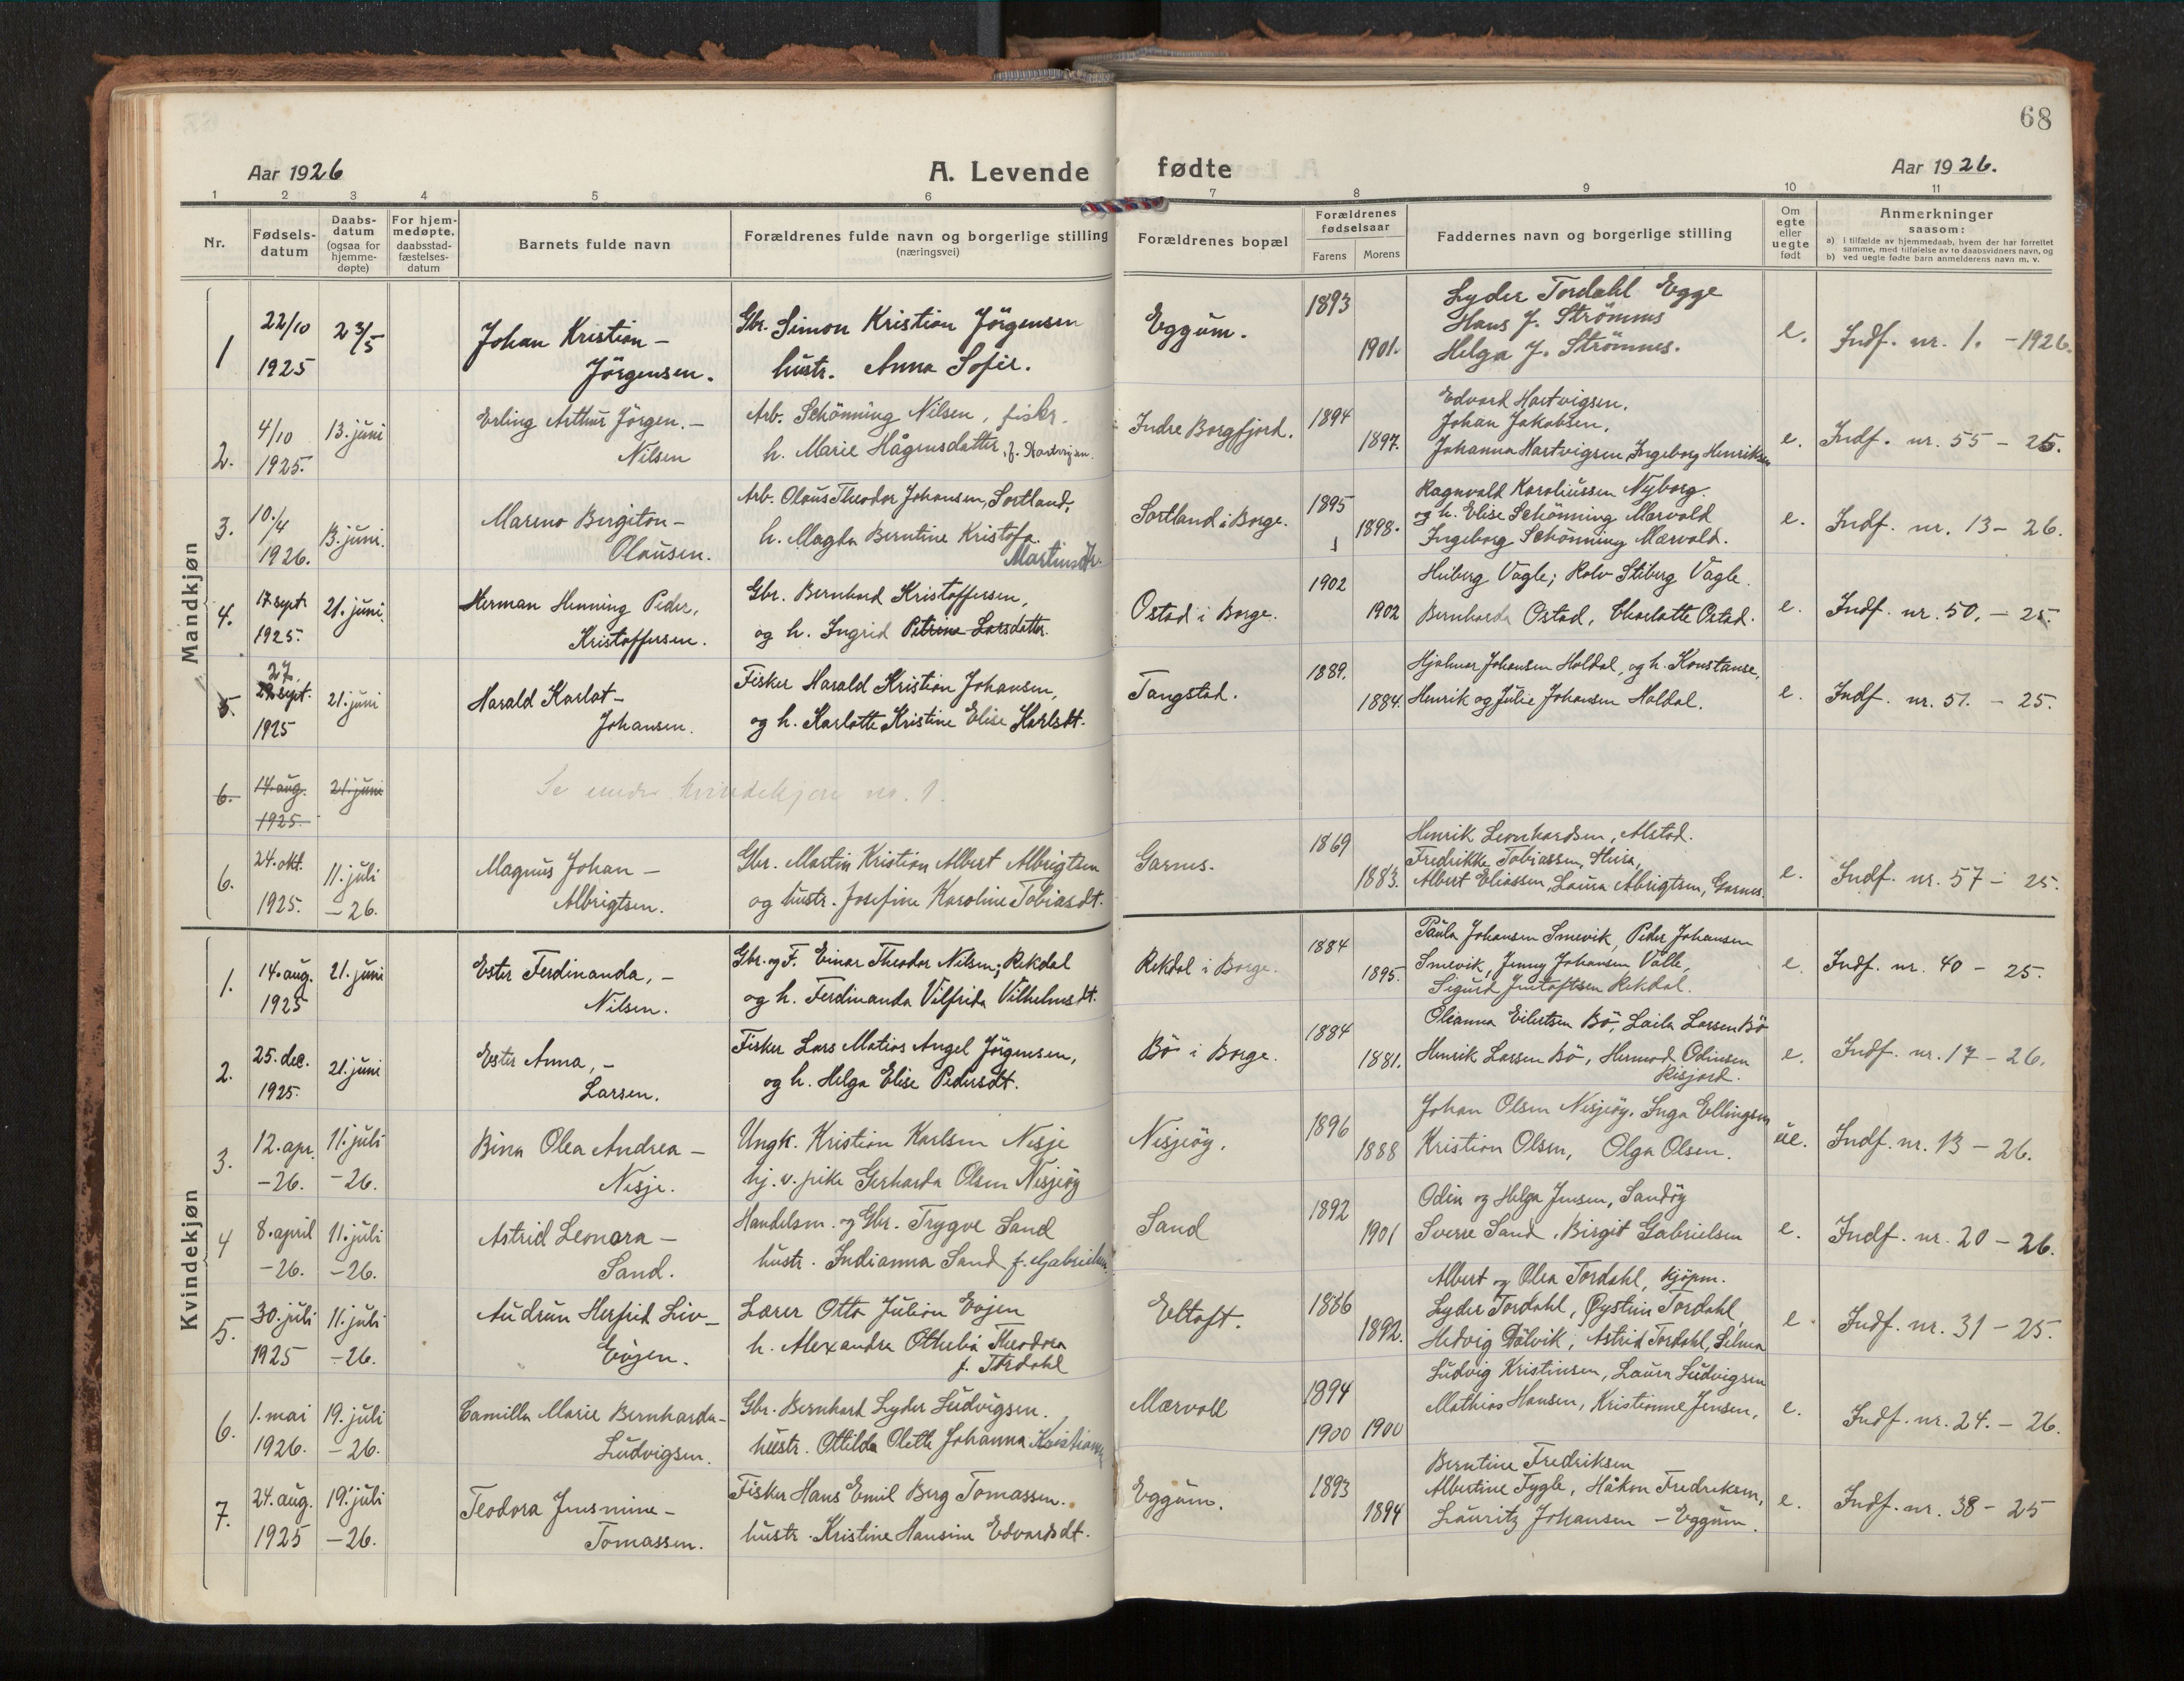 68
Aar 1926
A. Levende
fødte
Aar 1926.
1 2 3 4 5 6 7 8 9 10 11
Nr.
Fødsels-
datum
Daabs-
datum
(ogsaa for
hjemme-
døpte)
For hjem-
medøpte,
daabsstad-
fæstelses-
datum
Barnets fulde navn
Forældrenes fulde navn og borgerlige stilling
(næringsvei)
Forældrenes bopæl
Forældrenes
fødselsaar
Farens
Morens
Faddernes navn og borgerlige stilling
Om
egte
eller
uegte
født
Anmerkninger
saasom:
a) I tilfælde av hjemmedaab, hvem der har forrettet
samme, med tilføielse av to daabsvidners navn, og
b) ved uegte fødte barn anmelderens navn m. v.
Mandkjøn
1
22/10
1925
23/5
Johan Kristian –
Jörgensen.
Gbr. Simon Kristian Jörgensen
hustr. Anna Sofie.
Eggum.
1893
1901.
Lyder Tordahl Egge
Hans J. Strömnes
Helga J. Strömnes.
e.
Indf. nr. 1. – 1926.
2.
4/10
1925.
13. juni
Erling Arthur Jörgen. –
Nilsen
Arb. Schönning Nilsen, fisker.
h. Marie Hågensdatter, f. Hartvigsen.
Indre Borgfjord.
1894
1897.
Edvard Hartvigsen.
Johan Jakobsen,
Johanna Hartvigsen, Ingeborg Henriksen
e.
Indf. nr. 55 – 25.
3.
10./4
1926.
13. juni.
Mareno Bergiton –
Olausen.
Arb. Olaus Theodor Johansen, Sortland,
h. Magda Berntine Kristofa
Martinsdtr.
Sortland i Borge.
1895
1898.
Ragnvald Karoliussen Nyborg.
og h. Elise Schönning Mærvold
Ingeborg Schönning Mærvold.
e.
Indf. nr. 13 – 26.
4.
17. sept.
1925.
21. juni.
Herman Henning Peder,
Kristoffersen.
Gbr. Bernhard Kristoffersen,
og h. Ingrid Petrine Larsdatter.
Ostad i Borge.
1902
1902
Heiberg Vagle; Rolv Stiberg Vagle.
Bernharda Ostad, Charlotte Ostad.
e.
Indf. nr. 50. – 25.
5.
27.
29 sept.
1925
21. juni
Harald Karlot –
Johansen.
Fisker Harald Kristian Johansen,
og h. Karlotte Kristine Elise Karlsdt.
Tangstad.
1889.
1884.
Hjalmar Johansen Holdal, og h. Konstanse,
Henrik og Julie Johansen Holdal.
e.
Indf. nr. 51. – 25.
6.
14. aug.
1925.
21. juni
Se under kvindekjøn nr. 1.
6.
24. okt.
1925.
11. juli
– 26.
Magnus Johan –
Albrigtsen.
Gbr. Martin Kristian Albert Albrigtsen
og hustr. Josefine Karoline Tobiasdt.
Garnes.
1869
1883.
Henrik Leonhardsen, Alstad.
Fredrikke Tobiassen,
Albert Eliassen, Laura Albrigtsen, Garnes.
e.
Indf. nr. 57 – 25.
Kvindekjøn
1.
14. aug.
1925
21. juni
Ester Ferdinanda, –
Nilsen.
Gbr. og F. Einar Theodor Nilsen; Rekdal
og h. Ferdinanda Vilfrida Vilhelmsdt.
Rekdal i Borge.
1884
1895.
Paula Johansen Smevik, Peder Johansen
Smevik, Jenny Johansen Valle,
Sigurd Justoftsen Rekdal.
e.
Indf. nr. 40 – 25.
2.
25. dec.
1925.
21. juni
Ester Anna, –
Larsen.
Fisker Lars Matias Angel Jörgensen,
og h. Helga Elise Pedersdt.
Bö i Borge.
1884
1881.
Olianna Eilertsen Bö, Laila Larsen Bö
Henrik Larsen Bö, Hermod Odinsen
Risjord.
e.
Indf. nr. 17 – 26.
3.
12. apr.
– 26.
11. juli
– 26.
Bina Olea Andrea –
Nesje.
Ungk. Kristian Karlsen Nesje
hj. v. pike Gerharda Olsen Nesjeöy
Nesjeöy.
1896
1888
Johan Olsen Nesjeöy. Inga Ellingsen
Kristian Olsen, Olga Olsen.
ue.
Indf. nr. 13 – 26.
4
8. april
– 26.
11. juli
– 26.
Astrid Leonora –
Sand.
Handelsm. og Gbr. Trygve Sand
hustr. Indianna Sand f. Gabrielsen.
Sand
1892
1901
Odin og Helga Jensen, Sandöy
Sverre Sand, Birgit Gabrielsen
e.
Indf. nr. 20 – 26.
5.
30. juli
1925
11. juli
– 26.
Audrun Herfrid Liv –
Evjen.
Lærer Otto Julian Evjen
h. Alexandra Othelia Theodora
f. Tordahl
Eltoft.
1886
1892.
Albert og Olea Tordahl, kjöpm.
Lyder Tordahl, Øystein Tordahl,
Hedvig Dölvik, Astrid Tordahl, Selma
e.
Indf. nr. 31 – 25.
6.
1. mai
1926.
19. juli
– 26.
Camilla Marie Bernharda –
Ludvigsen.
Gbr. Bernhard Lyder Ludvigsen.
hustr. Ottilda Olette Johanna
Mærvoll
1894
1900 1900
Ludvig Kristensen, Laura Ludvigsen
Mathias Hansen, Kristianne Jensen,
e.
Indf. nr. 24. – 26.
7.
24. aug.
1925
19. juli
– 26.
Teodora Jensmine –
Tomassen.
Fisker Hans Emil Berg Tomassen.
hustr. Kristine Hansine Edvardsdt.
Eggum.
1893
1894
Berntine Fredriksen
Albertine Tygle, Håkon Fredriksen,
Lauritz Johansen – Eggum.
e.
Indf. nr. 38 – 25